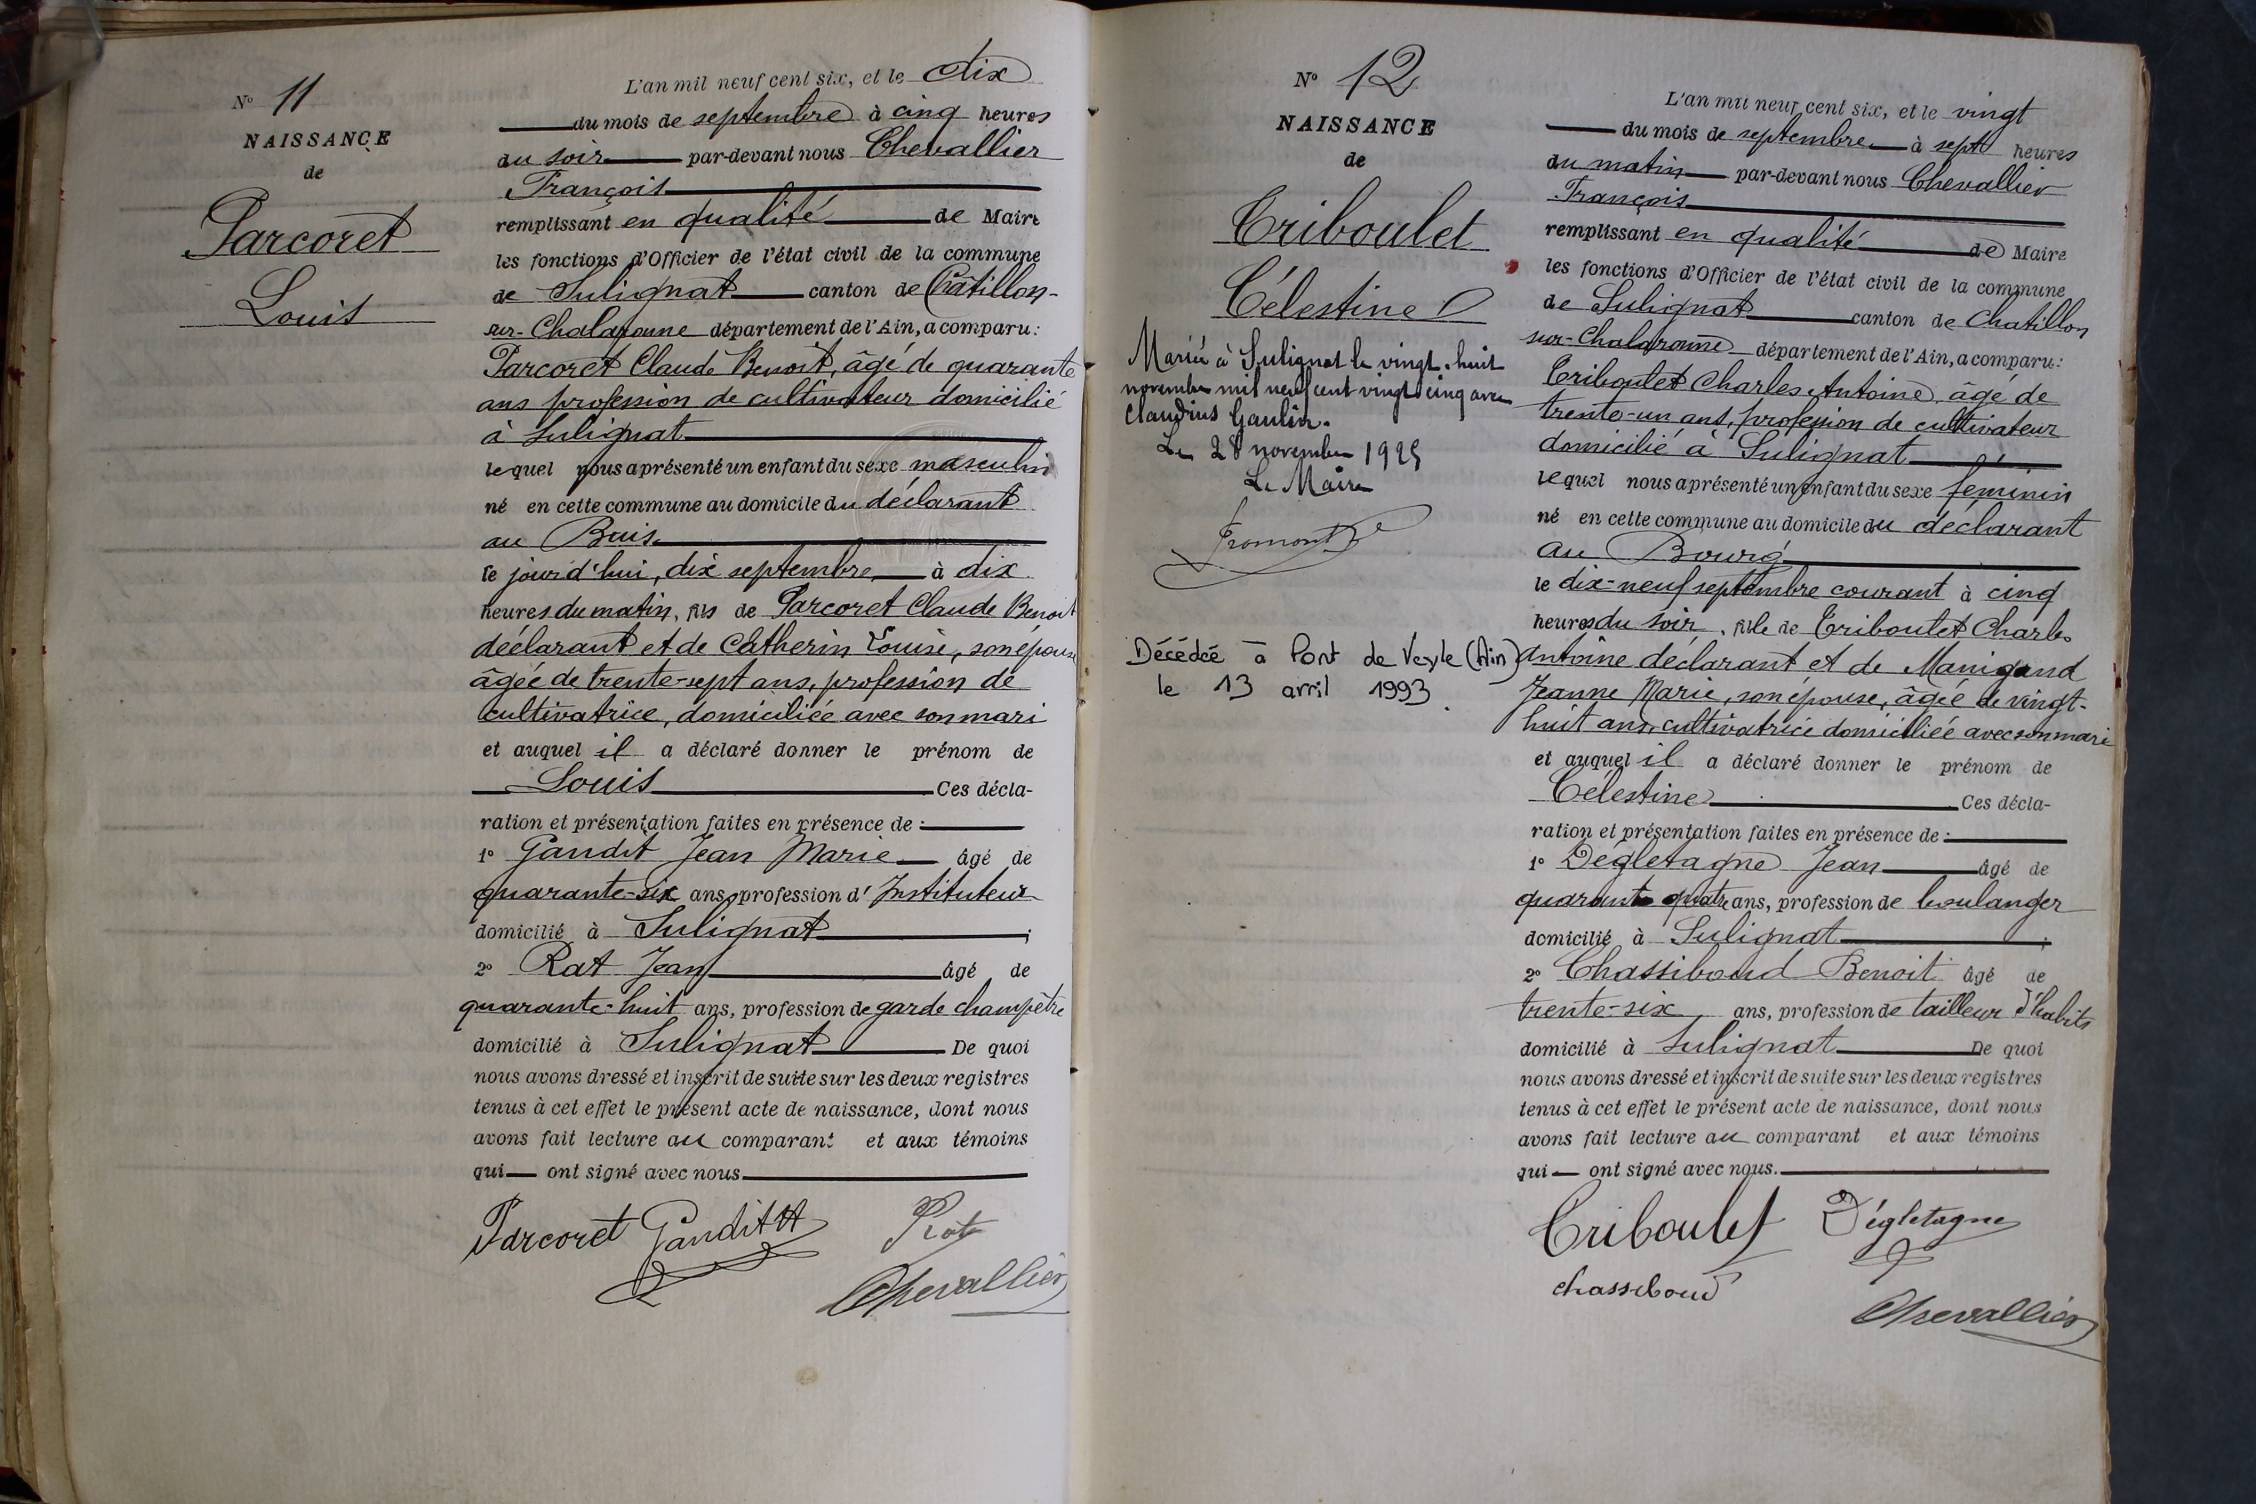 N° 11
NAISSANCE
de
Parcoret
Louis
L'an mil neuf cent six, et le dix
du mois de septembre à cinq heures
du soir par-devant nous Chevallier
François
remplissant en qualité de Maire
les fonctions d'Officier de l'état civil de la commune
de Sulignat canton de Châtillon-
sur-Chalaronne département de l'Ain, a comparu:
Parcoret Claude Benoit, âgé de quarante
ans profession de cultivateur domicilié
à Sulignat
lequel nous a présenté un enfant du sexe masculin
né en cette commune au domicile du déclarant
au Buis
le jourd'hui, dix septembre à dix
heures du matin, fils de Parcoret Claude Benoit
déclarant et de Catherin Louise, son épouse
âgée de trente-sept ans, profession de
cultivatrice, domiciliée avec son mari
et auquel il a déclaré donner le prénom de
Louis Ces décla-
ration et présentation faites en présence de :
1° Gandit Jean Marie âgé de
quarante-six ans, profession d'Instituteur
domicilié à Sulignat ;
2° Rat Jean âgé de
quarante-huit ans, profession de garde champêtre
domicilié à Sulignat De quoi
nous avons dressé et inscrit de suite sur les deux registres
tenus à cet effet le présent acte de naissance, dont nous
avons fait lecture au comparant et aux témoins
qui ont signé avec nous
Parcoret Gandit Rat
Chevallier
N° 12
NAISSANCE
de
Triboulet
Célestine
Mariée à Sulignat le vingt-huit
novembre mil neuf cent vingt cinq avec
Claudius Gaulin.
Le 28 novembre 1925
Le Maire
Fromont
Décédée à Pont de Veyle (Ain)
le 13 avril 1993.
L'an mil neuf cent six, et le vingt
du mois de septembre à sept heures
du matin par-devant nous Chevallier
François
remplissant en qualité de Maire
les fonctions d'Officier de l'état civil de la commune
de Sulignat canton de Chatillon
sur-Chalaronne département de l'Ain, a comparu:
Triboulet Charles Antoine âgé de
trente-un ans, profession de cultivateur
domicilié à Sulignat
lequel nous a présenté un enfant du sexe féminin
né en cette commune au domicile du déclarant
au Bourg
le dix-neuf septembre courant à cinq
heures du soir, fille de Triboulet Charles
Antoine déclarant et de Manigand
Jeanne Marie, son épouse, âgée de vingt-
huit ans, cultivatrice domiciliée avec son mari
et auquel il a déclaré donner le prénom de
Célestine Ces décla-
ration et présentation faites en présence de :
1° Dégletagne Jean âgé de
quarante quatre ans, profession de boulanger
domicilié à Sulignat ;
2° Chassiboud Benoit âgé de
trente-six ans, profession de tailleur d'habits
domicilié à Sulignat De quoi
nous avons dressé et inscrit de suite sur les deux registres
tenus à cet effet le présent acte de naissance, dont nous
avons fait lecture au comparant et aux témoins
qui ont signé avec nous.
Triboulet Dégletagne
chassiboud
Chevallier